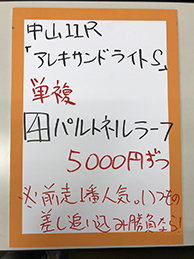 中山11R
「アレキサンドライトS」
単複
4 パルトネルラーフ
5000円ずつ
※前走1番人気。いつもの
差し追い込み勝負なら!